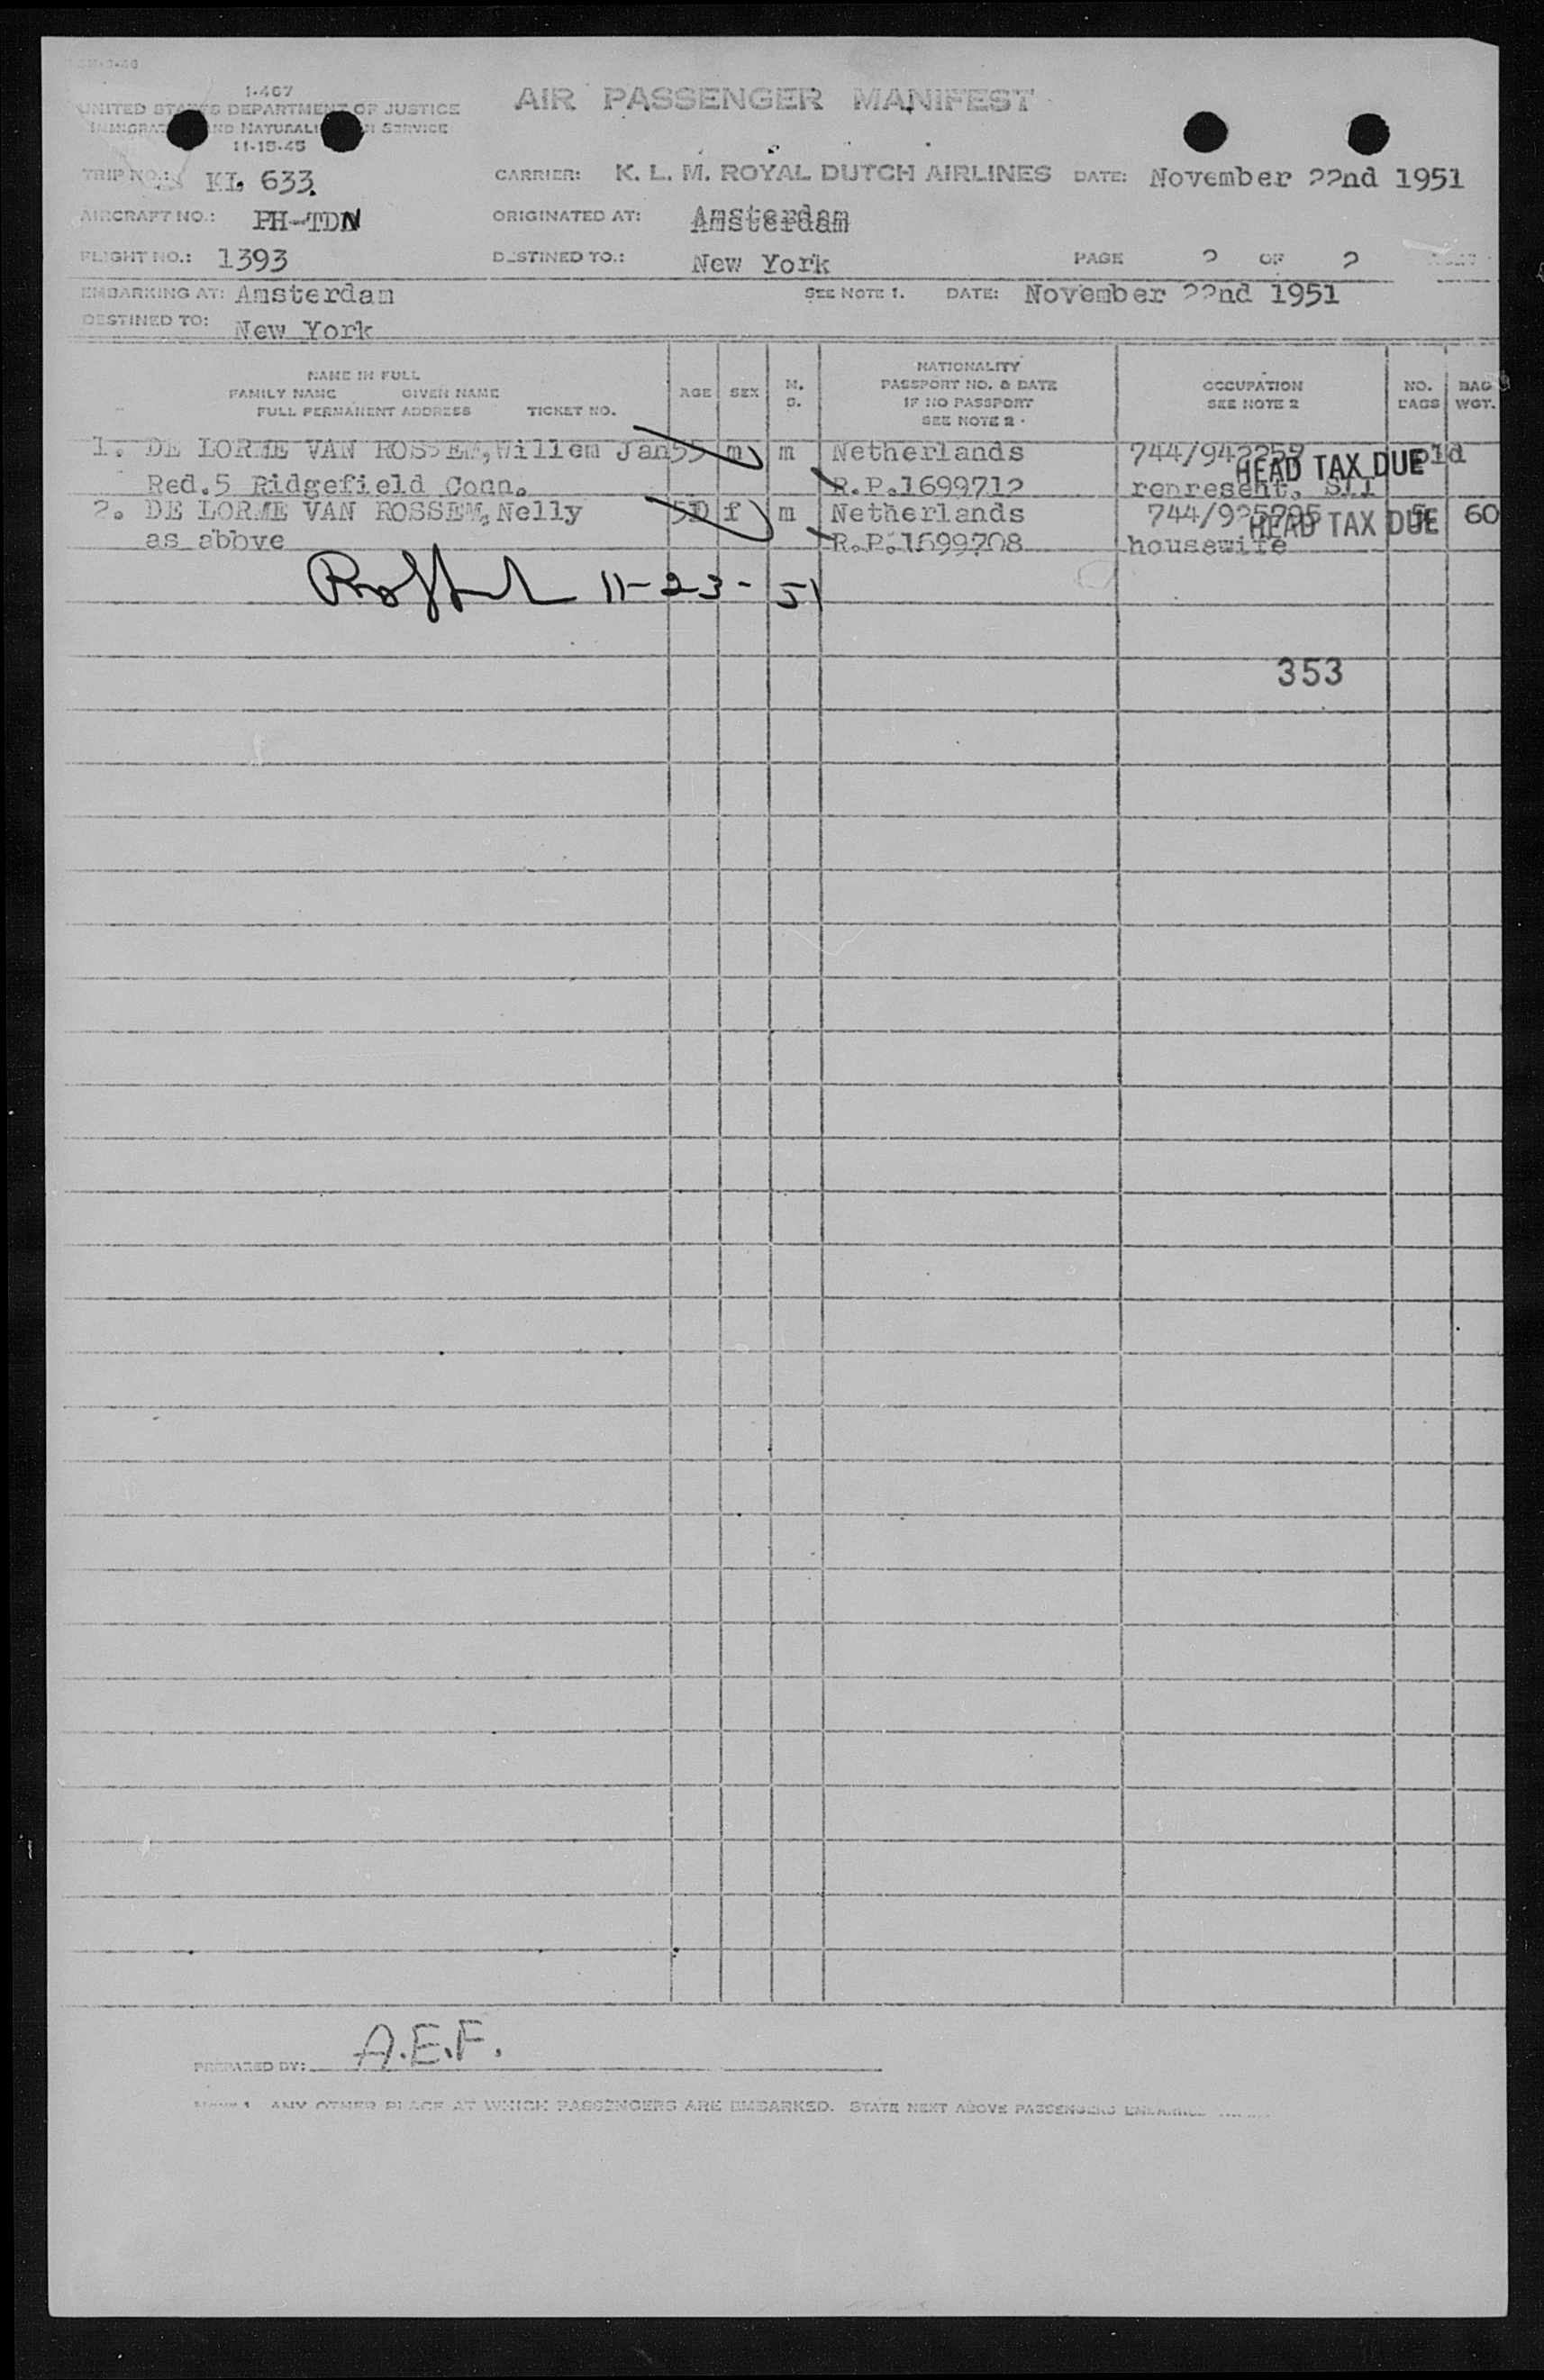 1-467
UNITED STATES DEPARTMENT OF JUSTICE
IMMIGRATION AND NATURALIZATION SERVICE
11-15-45
AIR PASSENGER MANIFEST
TRIP NO.: KL 633. CARRIER: K. L. M. ROYAL DUTCH AIRLINES DATE: November 22nd 1951
AIRCRAFT NO.: PH-TDN ORIGINATED AT: Amsterdam
FLIGHT NO.: 1393 DESTINED TO.: New York PAGE 2 OF 2
EMBARKING AT: Amsterdam SEE NOTE 1. DATE: November 22nd 1951
DESTINED TO: New York
NAME IN FULL
FAMILY NAME GIVEN NAME
FULL PERMANENT ADDRESS TICKET NO.
AGE SEX M. S.
NATIONALITY
PASSPORT NO. & DATE
IF NO PASSPORT
SEE NOTE 2
OCCUPATION
SEE NOTE 2
NO. BAGS
BAG WGT.
1. DE LORME VAN ROSSEM, Willem Jan 55 m m Netherlands 744/942259 pld
HEAD TAX DUE
Red.5 Ridgefield Conn. R.P.1699712 represent.
2. DE LORME VAN ROSSEM, Nelly f m Netherlands 60
HEAD TAX DUE
as abbve R.P.1699708 housewife
11-23-51
353
PREPARED BY: A.E.F.
NOTE 1. ANY OTHER PLACE AT WHICH PASSENGERS ARE EMBARKED. STATE NEXT ABOVE PASSENGERS